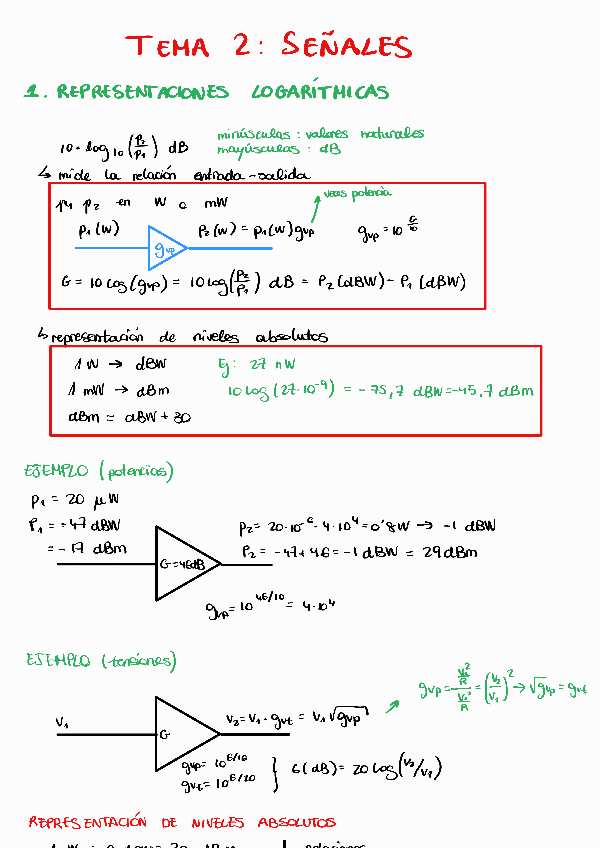 TEMA 2: SEÑALES
1. REPRESENTACIONES LOGARÍTMICAS
10·log₁₀(P₂/P₁) dB
minúsculas: valores naturales
mayúsculas: dB
↳ mide la relación entrada-salida
p₁, p₂ en W o mW
veces potencia
p₁(W)
gvp
p₂(W) = p₁(W) gvp
gvp = 10^(G/10)
G = 10 log(gvp) = 10 log(P₂/P₁) dB = P₂(dBW) - P₁(dBW)
↳ representación de niveles absolutos
1 W → dBW
Ej: 27 nW
1 mW → dBm
10 log(27·10⁻⁹) = -75,7 dBW = -45,7 dBm
dBm = dBW + 30
EJEMPLO (potencias)
p₁ = 20 µW
P₁ = -47 dBW
= -17 dBm
G=46dB
p₂ = 20·10⁻⁶·4·10⁴ = 0'8W → -1 dBW
P₂ = -47+46 = -1 dBW = 29 dBm
gvp = 10^(46/10) = 4·10⁴
EJEMPLO (tensiones)
V₁
G
V₂ = V₁·gvt = V₁√gvp
gvp = (V₂²/R)/(V₁²/R) = (V₂/V₁)² → √gvp = gvt
gvp = 10^(G/10)
gvt = 10^(G/20)
} G(dB) = 20 log(V₂/V₁)
REPRESENTACIÓN DE NIVELES ABSOLUTOS